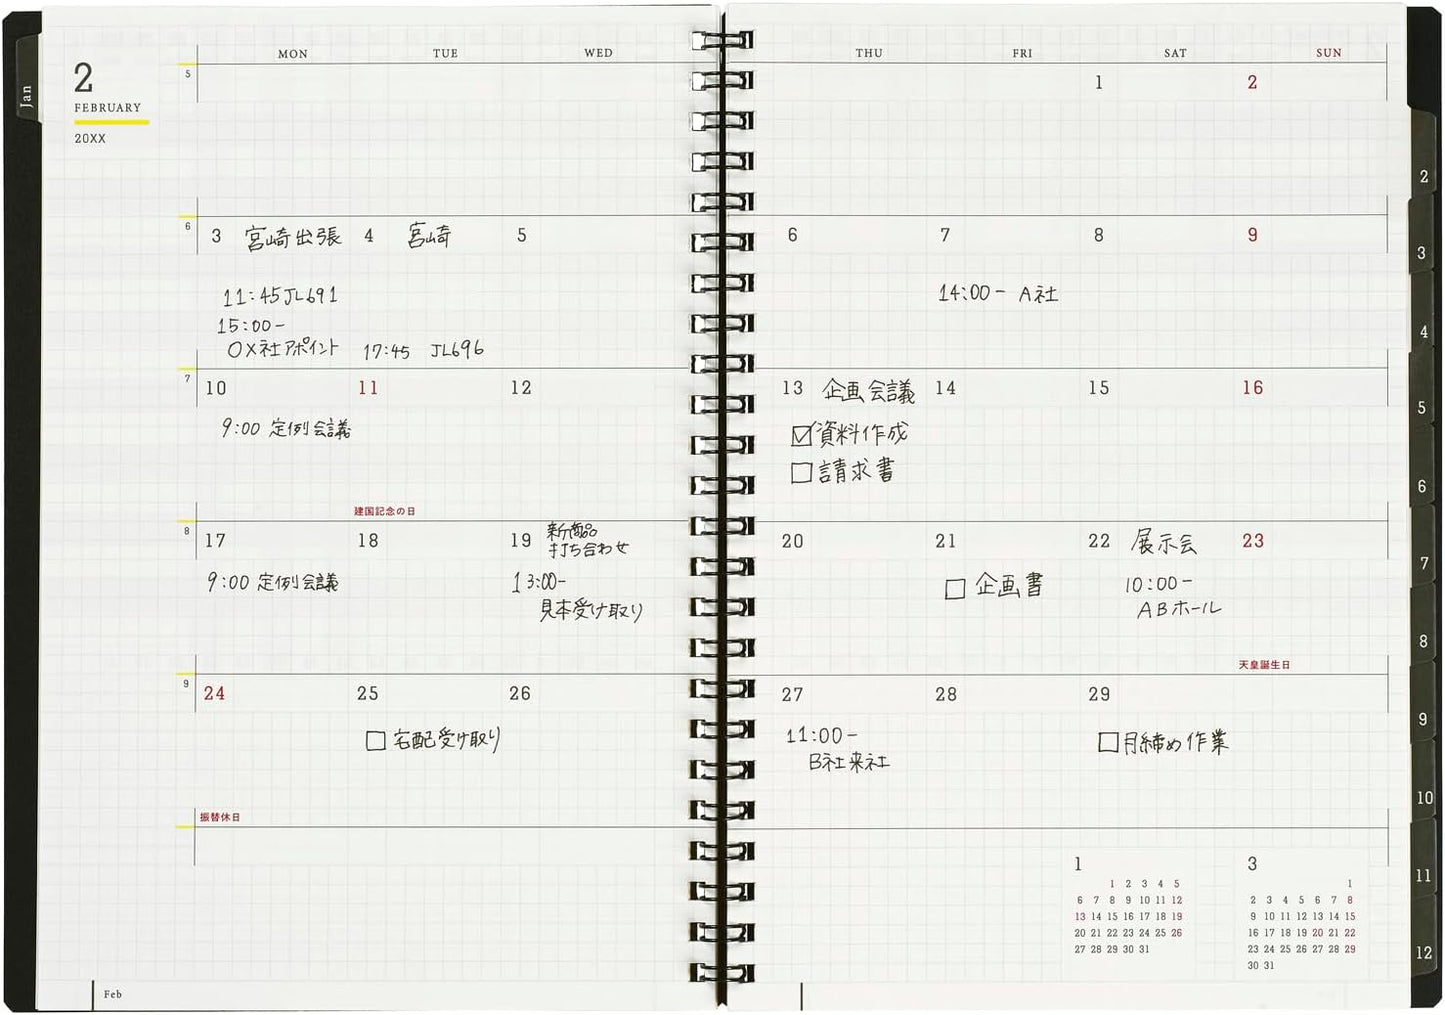 Jan
2
FEBRUARY
20XX
MON TUE WED THU FRI SAT SUN
5
1 2
6
3 宮崎出張 4 宮崎 5 6 7 8 9
11:45 JL691
15:00-
OX社アポイント
17:45 JL696
14:00- A社
7
10 11 12 13 企画会議 14 15 16
9:00 定例会議
☑資料作成
□請求書
建国記念の日
8
17 18 19 新商品
打ち合わせ
20 21 22 展示会 23
9:00 定例会議
13:00-
見本受け取り
□ 企画書
10:00-
ABホール
天皇誕生日
9
24 25 26 27 28 29
□ 宅配受け取り
11:00-
B社来社
□月締め作業
振替休日
1
1 2 3 4 5
6 7 8 9 10 11 12
13 14 15 16 17 18 19
20 21 22 23 24 25 26
27 28 29 30 31
3
1
2 3 4 5 6 7 8
9 10 11 12 13 14 15
16 17 18 19 20 21 22
23 24 25 26 27 28 29
30 31
Feb
2
3
4
5
6
7
8
9
10
11
12